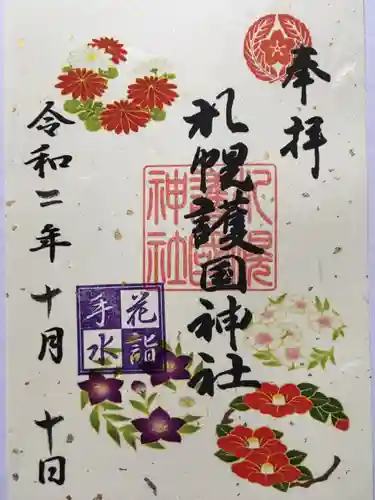 奉拝
札幌護国神社
札幌護国神社
花詣
手水
令和二年十月十日